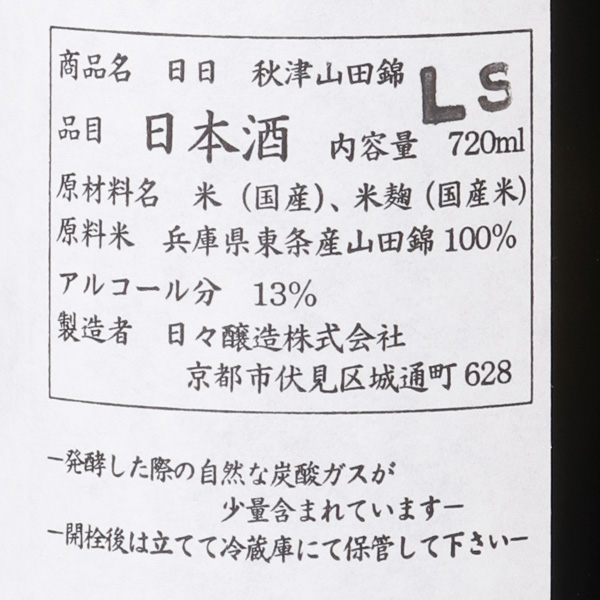 商品名　日日　秋津山田錦 LS
品目　日本酒　内容量　720ml
原材料名　米（国産）、米麹（国産米）
原料米　兵庫県東条産山田錦 100%
アルコール分　13%
製造者　日々醸造株式会社
京都市伏見区城通町 628
−発酵した際の自然な炭酸ガスが
少量含まれています−
−開栓後は立てて冷蔵庫にて保管して下さい−